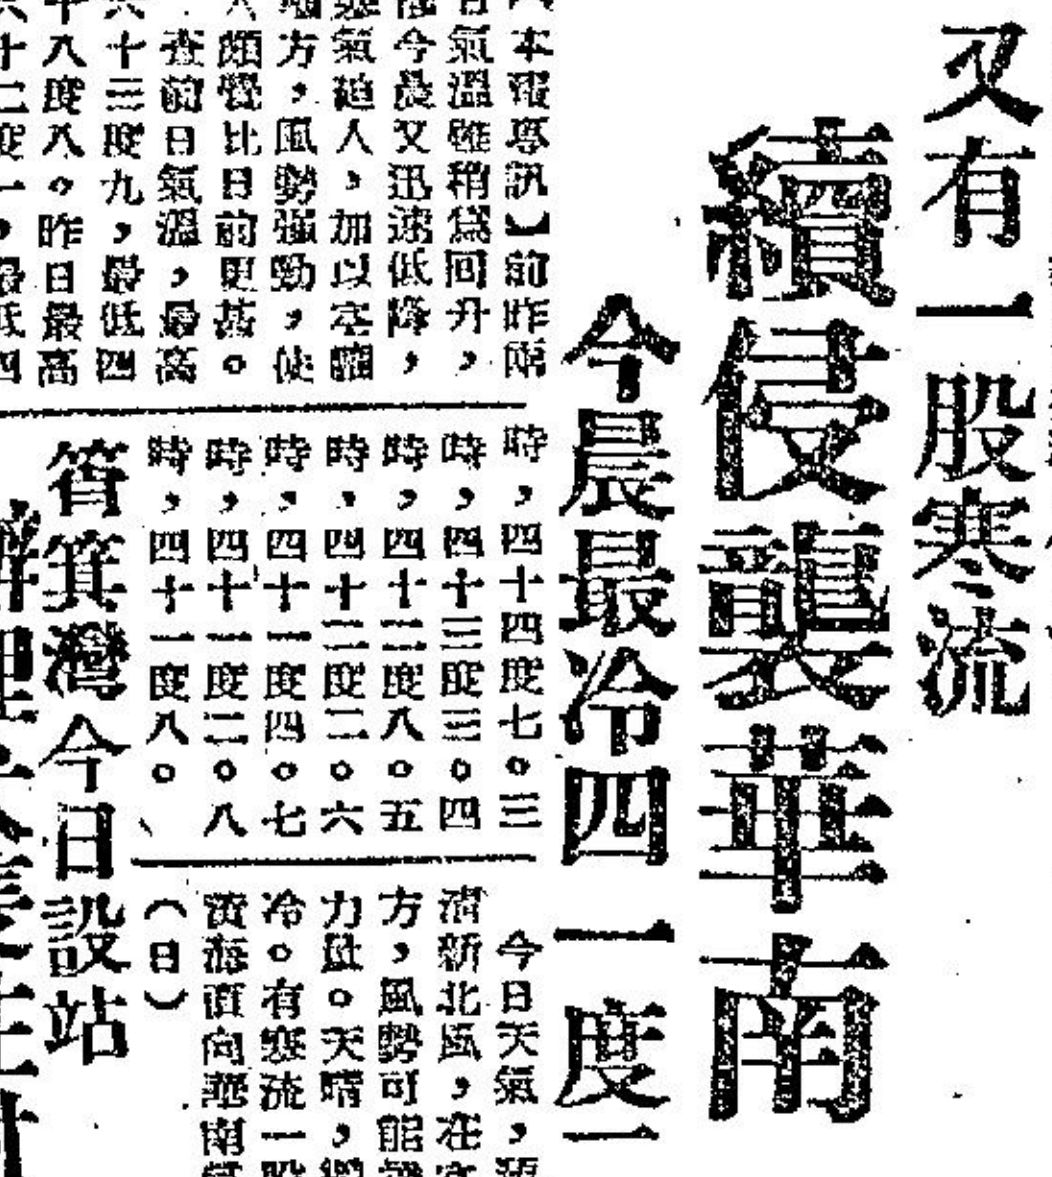 又有一股寒流
續侵襲華南
今晨最冷四一度二
本電專訊】前昨兩
氣溫雖稍爲回升,
今晨又迅速低降,
氣迫人,加以空曠
方,風勢強勁,使
頗覺比日前更甚。
查前日氣溫,最高
六十三度九,最低四
十八度八。昨日最高
六十二度一,最低四
時,四十四度七。三
時,四十三度三。四
時,四十二度八。五
時,四十二度二。六
時,四十一度四。七
時,四十一度二。八
時,四十一度八。
今日天氣,
清新北風,在
方,風勢可能
力量。天晴,
冷。有寒流一股
黃海直向華南
(日)
筲箕灣今日設站